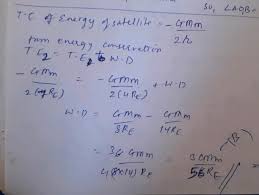 SU, LAQB=
T.E of Energy of satellite = - GMm / 2r
from energy conservation
T.E₂ = T.E₁ + W.D
- GMm / 2(7RE) = - GMm / 2(4RE) + W.D
W.D = GMm / 8RE - GMm / 14RE
= 36 GMm / 4(8×14) RE = 3 GMm / 56 RE
(B)